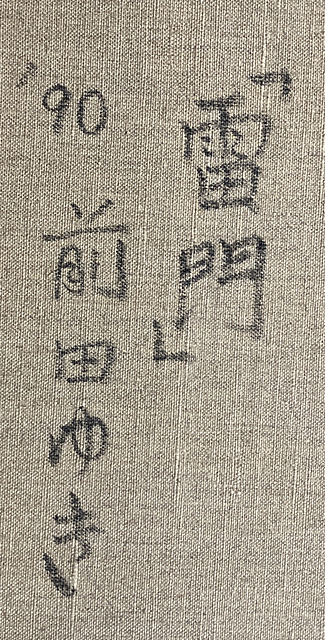 「雷門」
'90 前田ゆき